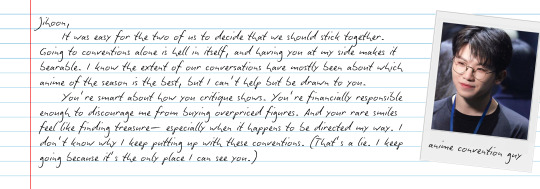 Jihoon,
It was easy for the two of us to decide that we should stick together.
Going to conventions alone is hell in itself, and having you at my side makes it
bearable. I know the extent of our conversations have mostly been about which
anime of the season is the best, but I can't help but be drawn to you.
You're smart about how you critique shows. You're financially responsible
enough to discourage me from buying overpriced figures. And your rare smiles
feel like finding treasure— especially when it happens to be directed my way. I
don't know why I keep putting up with these conventions. (That's a lie. I keep
going because it's the only place I can see you.)
anime convention guy